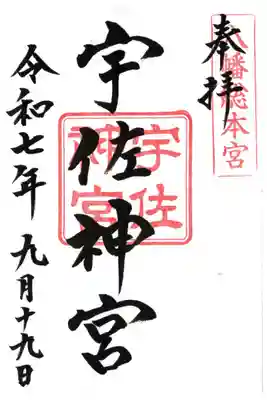 奉拝
八幡総本宮
宇佐神宮
宇佐神宮
令和七年 九月十九日